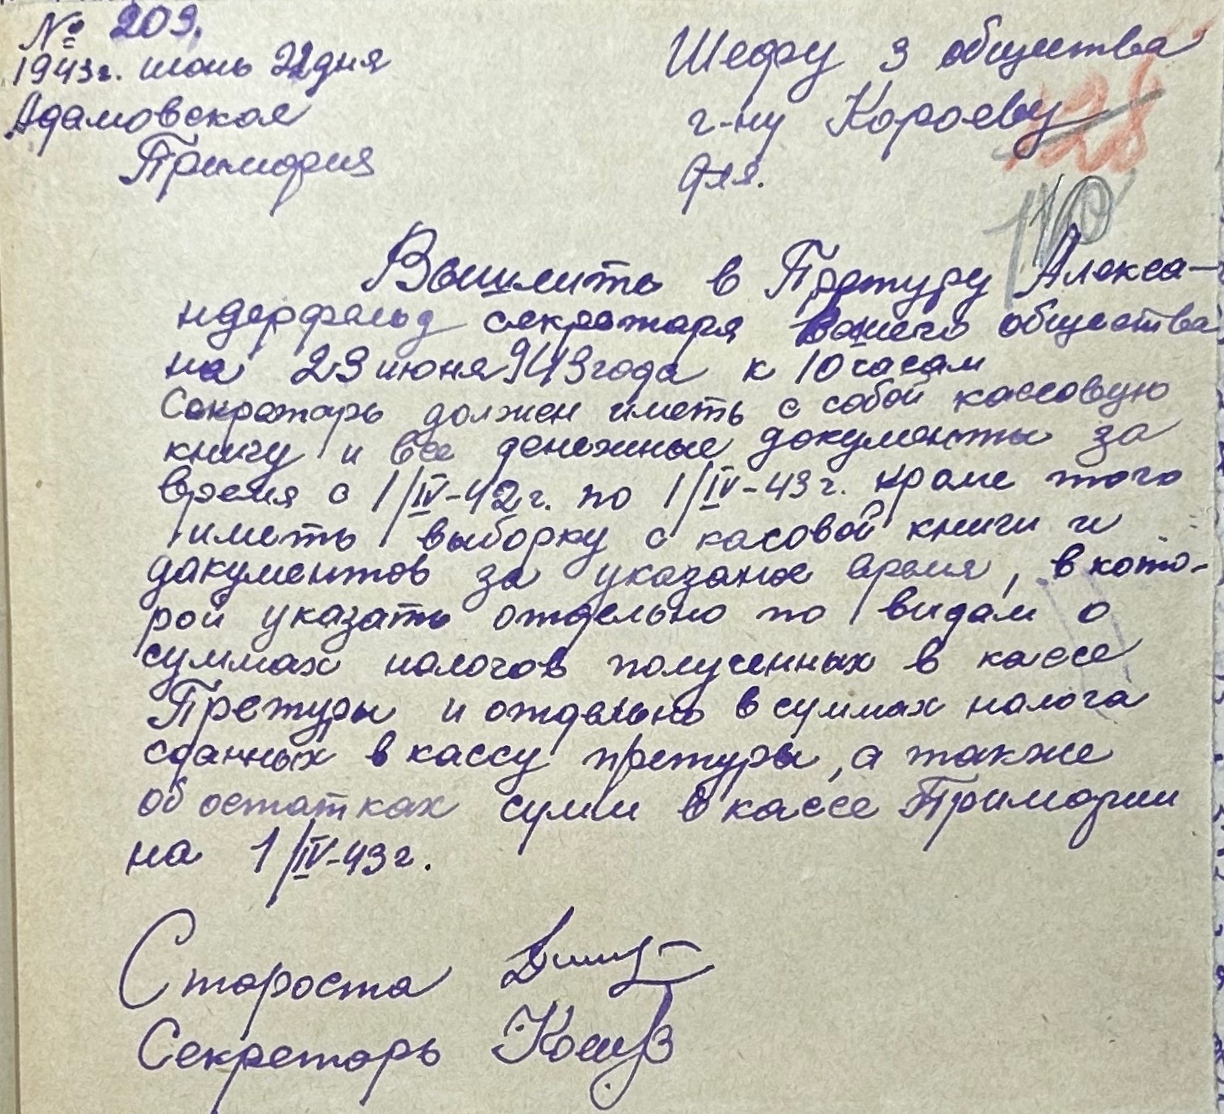 № 209.
1943г. июнь 22 дня
Адамовская
Примария
Шефу 3 общества
г-ну Короеву
128
110
Для.
Вышлить в Претуру Алекса-
ндерфельд секретаря Вашего общества
на 23 июня 943 года к 10 часам
Секретарь должен иметь с собой кассовую
книгу и все денежные документы за
время с 1/IV-42г. по 1/IV-43г. кроме того
иметь выборку с касовой книги и
дакументов за указаное время, в кото-
рой указать отдельно по видам о
суммах налогов полученных в кассе
Претуры и отдельно в суммах налога
сданных в кассу претуры, а также
об остатках сумм в кассе Примарии
на 1/IV-43г.
Староста
Секретарь